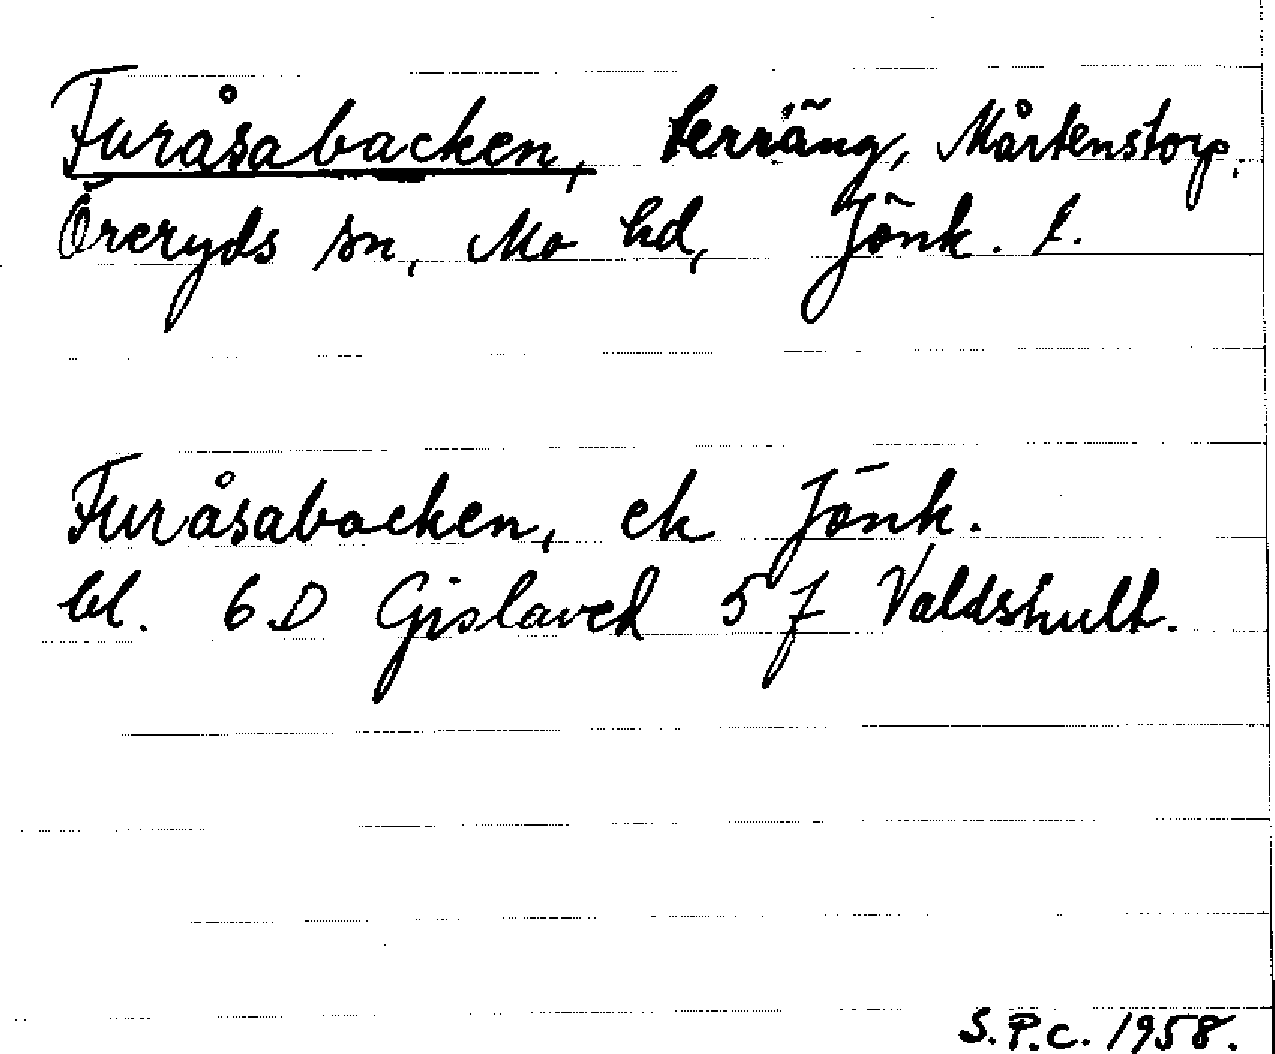 Furåsabacken, terräng, Mårtenstorp,
Öreryds sn, Mo hd, Jönk. l.
Furåsabacken, ek Jönk.
bl. 6 D Gislaved 5 f Valdshult.
S.P.C. 1958.